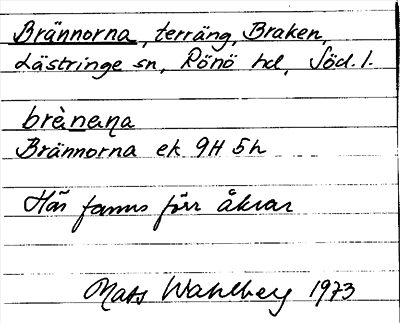 Brännorna, terräng, Braken,
Lästringe sn, Rönö hd, Söd. l.
brènạna
Brännorna ek 9H 5h
Här fanns förr åkrar
Mats Wahlberg 1973